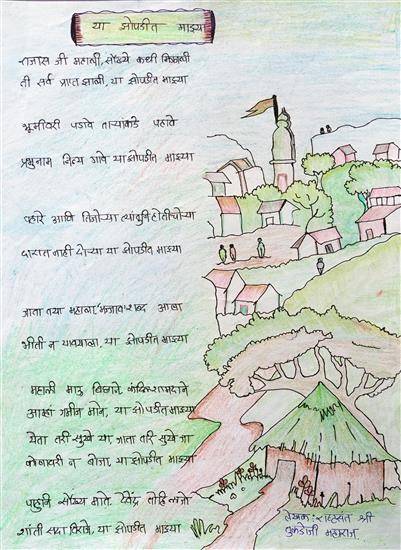 या झोपडीत माझ्या
राजास जी महाली, सौख्ये कधी मिळाली
ती सर्व प्राप्त झाली, या झोपडीत माझ्या
भूमीवरी पडावे ताऱ्याकडे पहावे
प्रभुनाम नित्य गावे या झोपडीत माझ्या
पहारे आणि तिजोऱ्या त्यातुनि होती चोऱ्या
दारास नाही दोऱ्या या झोपडीत माझ्या
जाता तया महाला 'मज्जाव' शब्द आला
भीती न यावयाला, या झोपडीत माझ्या
महाली मऊ बिछाने,
आम्हा जमीन माने, या झोपडीत माझ्या
येता तरी सुखे या, जाता तरी सुखे जा
कोणावरी न बोजा, या झोपडीत माझ्या
पाहुनि सौख्य माते, देवेंद्र तोहि लाजे
शांती सदा विराजे, या झोपडीत माझ्या
लेखक: राष्ट्रसंत श्री
तुकडोजी महाराज